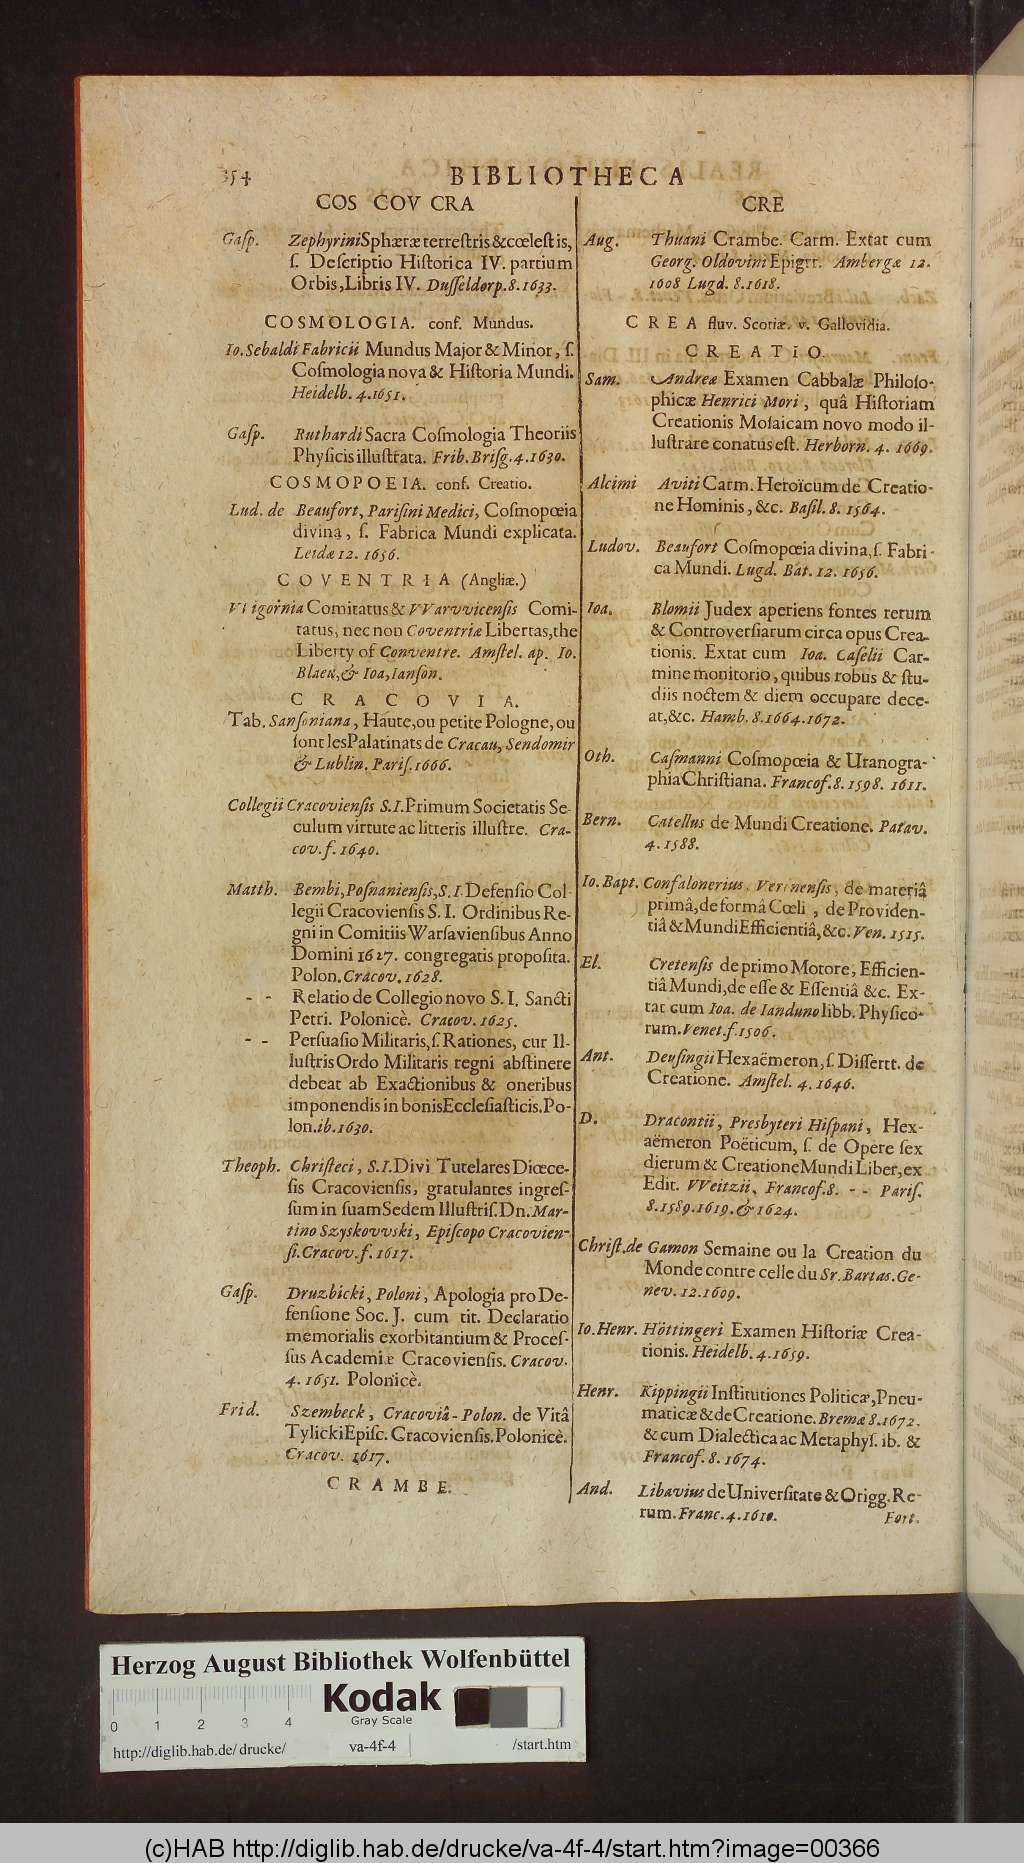 354
BIBLIOTHECA
COS COV CRA
Gaſp. Zephyrini Sphæræ terreſtris & cœleſtis,
ſ. Deſcriptio Hiſtorica IV. partium
Orbis, Libris IV. Duſſeldorp. 8. 1633.
COSMOLOGIA. conf. Mundus.
Io. Sebaldi Fabricii Mundus Major & Minor, ſ.
Coſmologia nova & Hiſtoria Mundi.
Heidelb. 4. 1651.
Gaſp. Ruthardi Sacra Coſmologia Theoriis
Phyſicis illuſtrata. Frib. Briſg. 4. 1630.
COSMOPOEIA. conf. Creatio.
Lud. de Beaufort, Pariſini Medici, Coſmopœia
divina, ſ. Fabrica Mundi explicata.
Leidæ 12. 1656.
COVENTRIA (Angliæ.)
Vigornia Comitatus & VVarvvicenſis Comi-
tatus, nec non Coventriæ Libertas, the
Liberty of Conventre. Amſtel. ap. Io.
Blaeu, & Ioa, Ianſon.
CRACOVIA.
Tab. Sanſoniana, Haute, ou petite Pologne, ou
ſont les Palatinats de Cracau, Sendomir
& Lublin. Pariſ. 1666.
Collegii Cracovienſis S. I. Primum Societatis Se-
culum virtute ac litteris illuſtre. Cra-
cov. f. 1640.
Matth. Bembi, Poſnanienſis, S. I. Defenſio Col-
legii Cracovienſis S. I. Ordinibus Re-
gni in Comitiis Warſavienſibus Anno
Domini 1627. congregatis propoſita.
Polon. Cracov. 1628.
- - Relatio de Collegio novo S. I. Sancti
Petri. Polonicè. Cracov. 1625.
- - Perſuaſio Militaris, ſ. Rationes, cur Il-
luſtris Ordo Militaris regni abſtinere
debeat ab Exactionibus & oneribus
imponendis in bonis Eccleſiaſticis. Po-
lon. ib. 1630.
Theoph. Chriſteci, S. I. Divi Tutelares Diœce-
ſis Cracovienſis, gratulantes ingreſ-
ſum in ſuam Sedem Illuſtriſ. Dn. Mar-
tino Szyskovvski, Epiſcopo Cracovien-
ſi. Cracov. f. 1617.
Gaſp. Druzbicki, Poloni, Apologia pro De-
fenſione Soc. J. cum tit. Declaratio
memorialis exorbitantium & Proceſ-
ſus Academiæ Cracovienſis. Cracov.
4. 1651. Polonicè.
Frid. Szembeck, Cracoviâ-Polon. de Vitâ
Tylicki Epiſc. Cracovienſis. Polonicè.
Cracov. 1617.
CRAMBE.
CRE
Aug. Thuani Crambe. Carm. Extat cum
Georg. Oldovini Epigrr. Ambergæ 12.
1608 Lugd. 8. 1618.
CREA fluv. Scotiæ. v. Gallovidia.
CREATIO.
Sam. Andreæ Examen Cabbalæ Philoſo-
phicæ Henrici Mori, quâ Hiſtoriam
Creationis Moſaicam novo modo il-
luſtrare conatus eſt. Herborn. 4. 1669.
Alcimi Aviti Carm. Heroïcum de Creatio-
ne Hominis, &c. Baſil. 8. 1564.
Ludov. Beaufort Coſmopœia divina, ſ. Fabri-
ca Mundi. Lugd. Bat. 12. 1656.
Ioa. Blomii Judex aperiens fontes rerum
& Controverſiarum circa opus Crea-
tionis. Extat cum Ioa. Caſelii Car-
mine monitorio, quibus robus & ſtu-
diis noctem & diem occupare dece-
at, &c. Hamb. 8. 1664. 1672.
Oth. Caſmanni Coſmopœia & Uranogra-
phia Chriſtiana. Francof. 8. 1598. 1611.
Bern. Catellus de Mundi Creatione. Patav.
4. 1588.
Io. Bapt. Confalonerius, Veronenſis, de materiâ
primâ, de formâ Cœli, de Providen-
tiâ & Mundi Efficientiâ, &c. Ven. 1515.
El. Cretenſis de primo Motore, Efficien-
tiâ Mundi, de eſſe & Eſſentiâ &c. Ex-
tat cum Ioa. de Ianduno libb. Phyſico-
rum. Venet. f. 1506.
Ant. Deuſingii Hexaëmeron, ſ. Diſſertt. de
Creatione. Amſtel. 4. 1646.
D. Dracontii, Presbyteri Hiſpani, Hex-
aëmeron Poëticum, ſ. de Opere ſex
dierum & Creatione Mundi Liber, ex
Edit. VVeitzii, Francof. 8. - - Pariſ.
8. 1589. 1619. & 1624.
Chriſt. de Gamon Semaine ou la Creation du
Monde contre celle du Sr. Bartas. Ge-
nev. 12. 1609.
Io. Henr. Höttingeri Examen Hiſtoriæ Crea-
tionis. Heidelb. 4. 1659.
Henr. Kippingii Inſtitutiones Politicæ, Pneu-
maticæ & de Creatione. Bremæ 8. 1672.
& cum Dialectica ac Metaphyſ. ib. &
Francof. 8. 1674.
And. Libavius de Univerſitate & Origg. Re-
rum. Franc. 4. 1610.
Fort.
Herzog August Bibliothek Wolfenbüttel
Kodak
Gray Scale
0 1 2 3 4
http://diglib.hab.de/drucke/ va-4f-4 /start.htm
(c)HAB http://diglib.hab.de/drucke/va-4f-4/start.htm?image=00366